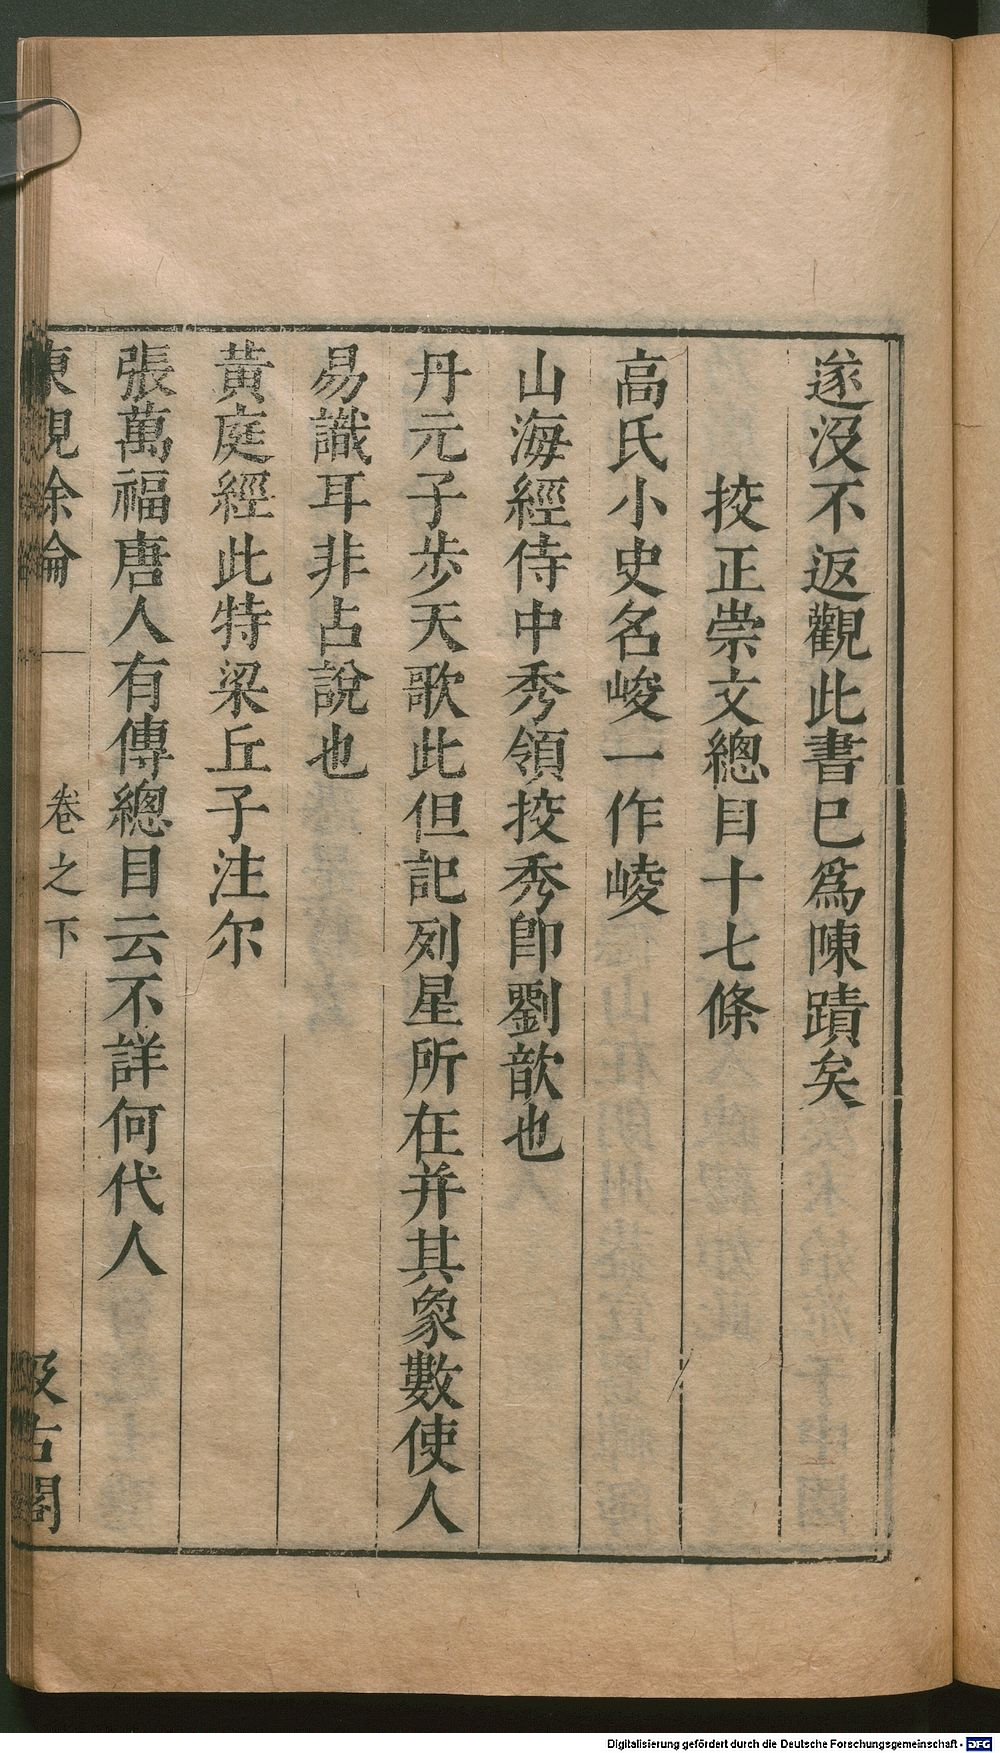 遂没不返觀此書已爲陳蹟矣
挍正崇文總目十七條
高氏小史名峻一作崚
山海經侍中秀領挍秀卽劉歆也
丹元子步天歌此但記列星所在并其象數使人
易識耳非占說也
黃庭經此特梁丘子注尔
張萬福唐人有傳總目云不詳何代人
東觀余論 卷之下 汲古閣
Digitalisierung gefördert durch die Deutsche Forschungsgemeinschaft - DFG